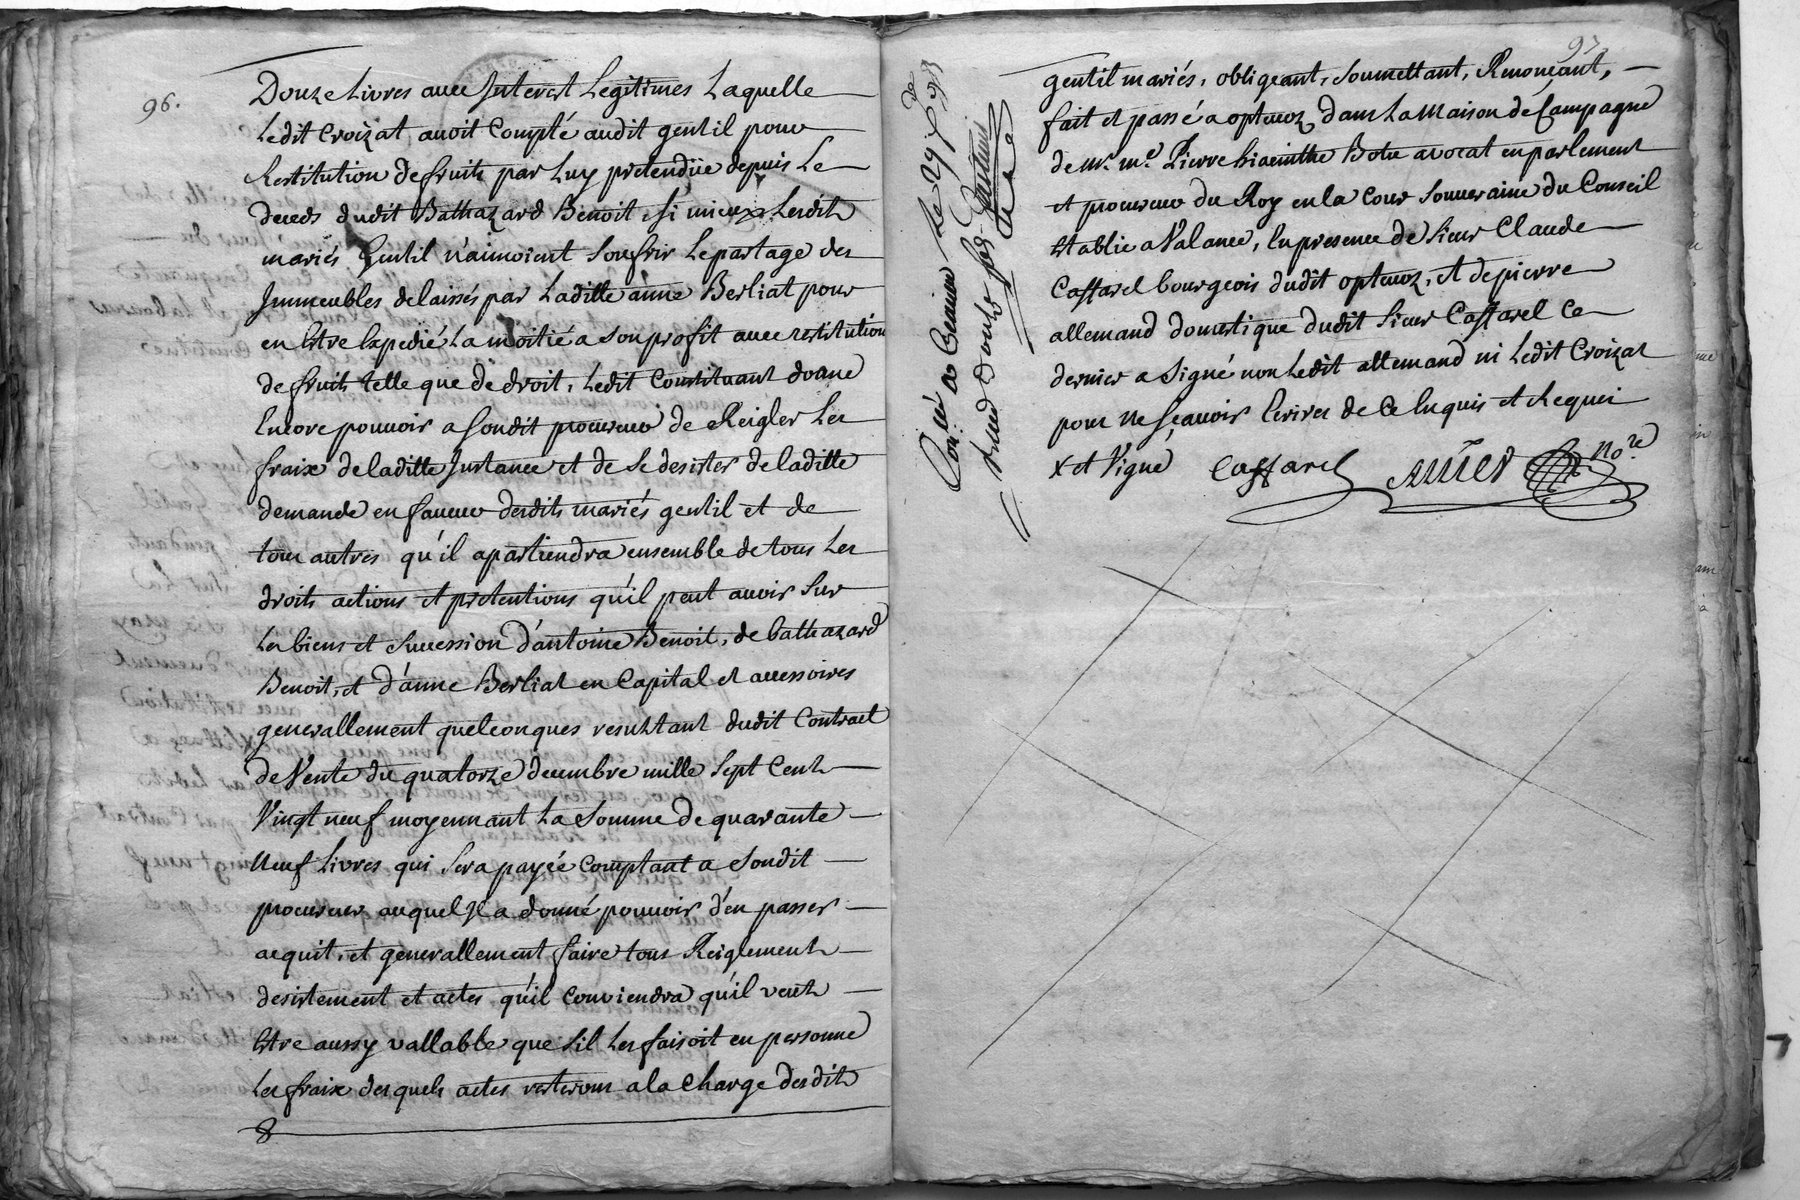 96.
Douze Livres avec Interest Legitimes Laquelle
Ledit Croizat avoit Compté audit gentil pour
Restitution de fruits par Luy pretendüe depuis Le
deceds dudit Balthazard Benoit, si mieux Lesdits
mariés Gentil n'aimoient soufrir Le partage des
Immeubles delaissés par Laditte anne Berliat pour
en Estre Expedié La moitié a son profit avec restitution
de fruits telle que de droit, Ledit Constituant donne
Encore pouvoir a sondit procureur de Reigler Les
fraix de laditte Instance et de se desister de laditte
demande en faveur desdits mariés gentil et de
tous autres qu'il apartiendra ensemble de tous Les
droits actions et pretentions qu'il peut avoir sur
Les biens et succession d'antoine Benoit, de balthazard
Benoit, et d'anne Berliat en Capital et accessoires
generallement quelconques resultant dudit Contract
de Vente du quatorze decembre mille sept Cents
Vingt neuf moyennant La somme de quarante
Neuf Livres qui sera payée comptant a sondit
procureur auquel Il a donné pouvoir d'en passer
acquit, et generallement faire tous Reiglements
desistement et actes qu'il conviendra qu'il veut
Estre aussy vallable que s'il Les faisoit en personne
Les fraix desquels actes resteront a la charge desdits
97
gentil mariés, obligeant, soumettant, Renonçant,
fait et passé a optevoz dans La Maison de Campagne
de Mr. me. Pierre hiacinthe Botu avocat en parlement
et procureur du Roy en la cour souveraine du Conseil
Establie a Valance, En presence de sieur Claude
Caffarel bourgeois dudit optevoz, et de pierre
allemand domestique dudit sieur Caffarel Ce
dernier a signé non Ledit allemand ni Ledit Croizat
pour ne sçavoir Ecrire de ce Enquis et Requis
x et signé Caffarel No.re
Con.llé a Cremieu Le 29
Reçu douze sols